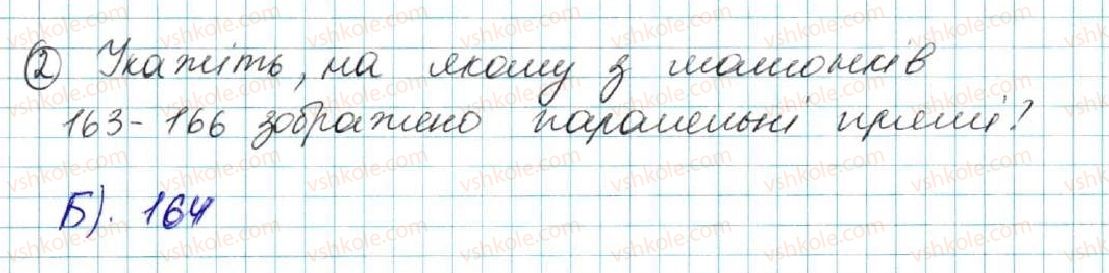 2 Укажіть, на якому з малюнків
163 - 166 зображено паралельні прямі?
Б). 164